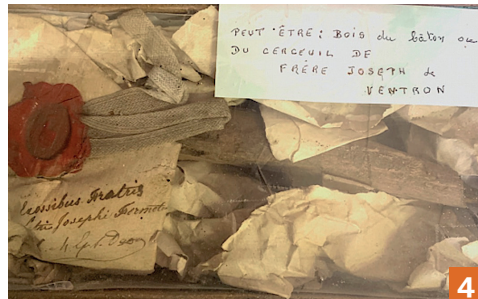 PEUT-ÊTRE : BOIS du bâton ou
DU CERCEUIL DE
FRÈRE JOSEPH de
VENTRON
Fratris
Josephi
4